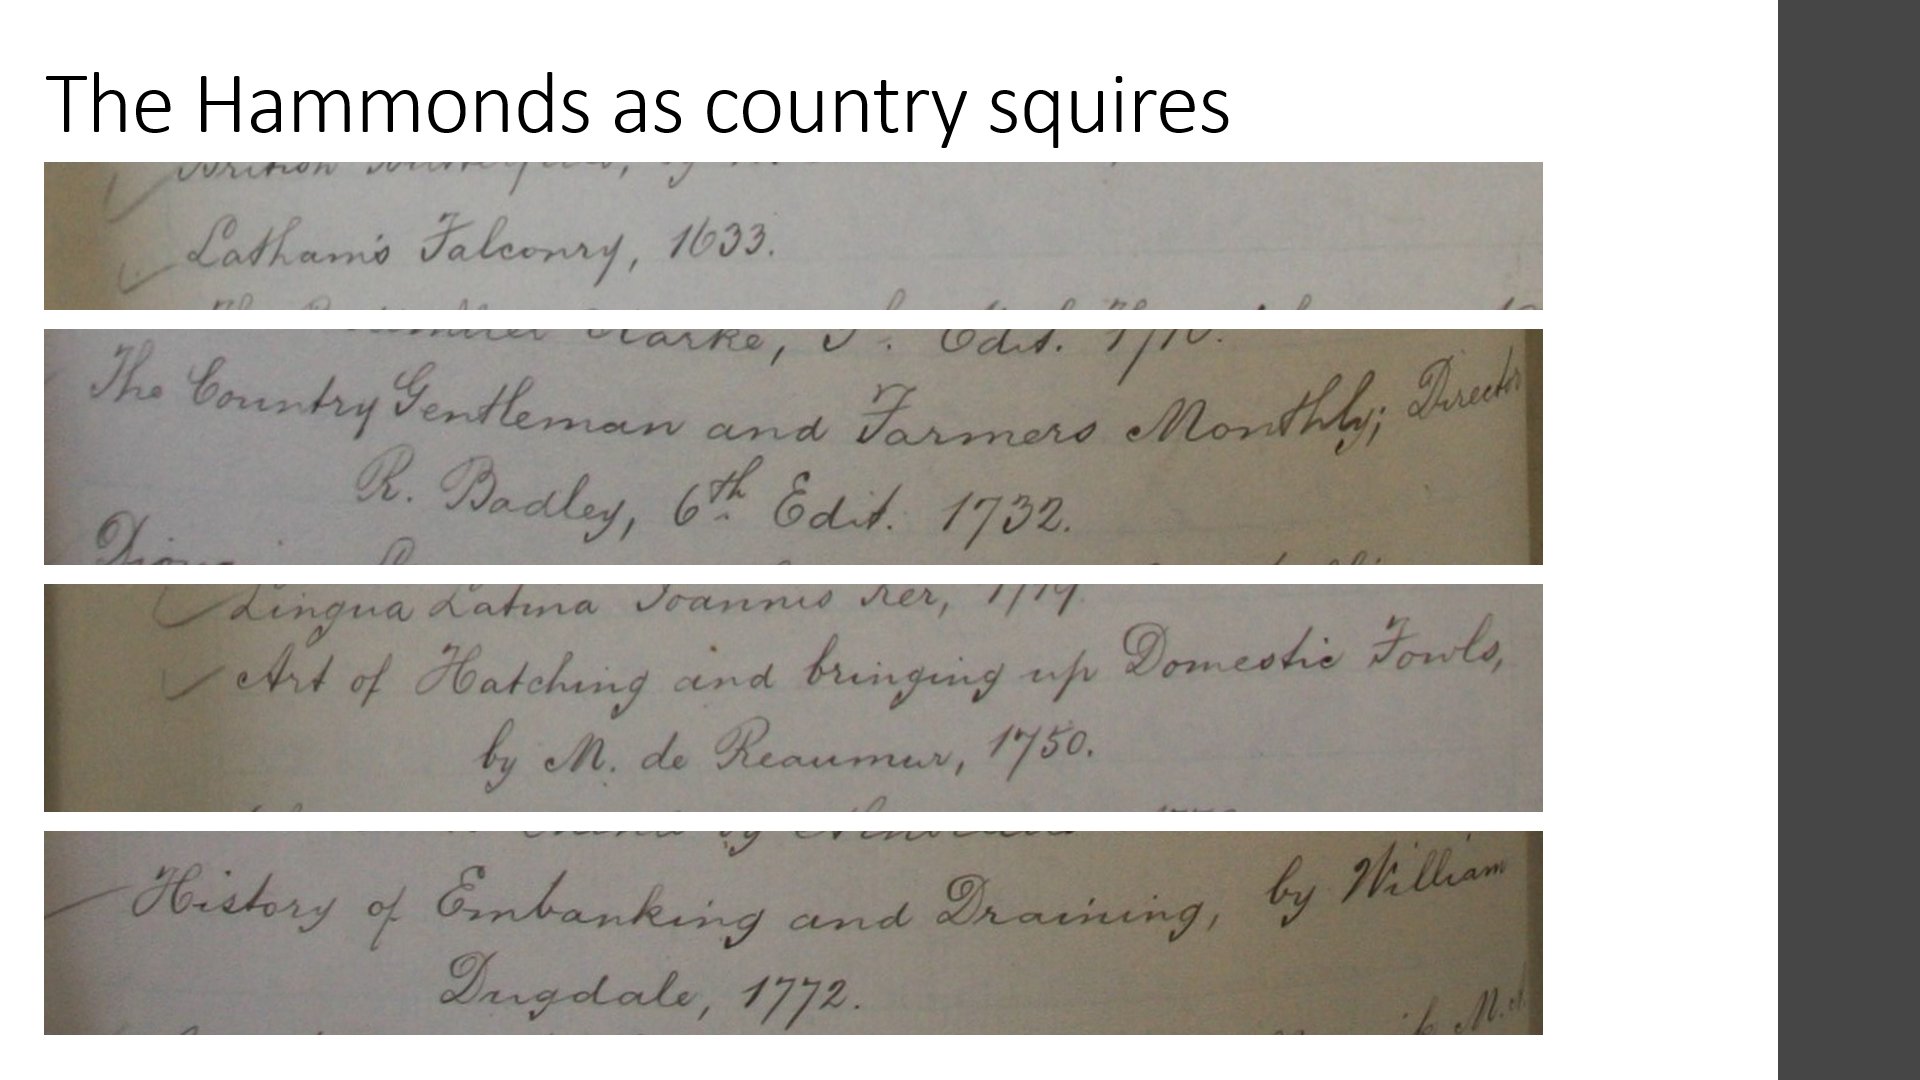 The Hammonds as country squires
Latham's Falconry, 1633.
Clarke, Edit.
The Country Gentleman and Farmers Monthly; Director
R. Badley, 6th Edit. 1732.
Lingua Latina Joannis Ker, 1719.
Art of Hatching and bringing up Domestic Fowls,
by M. de Reaumur, 1750.
History of Embanking and Draining, by William
Dugdale, 1772.